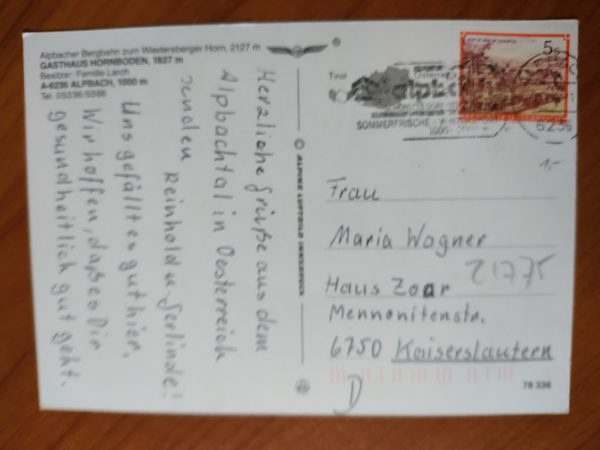 Alpbacher Bergbahn zum Wiedersberger Horn, 2127 m
GASTHAUS HORNBODEN, 1827 m
Besitzer: Familie Larch
A-6236 ALPBACH, 1000 m
Tel. 05336/5366
®
Herzliche Grüße aus dem
Alpbachtal in Oesterreich
senden Reinhold u Gerlinde!
Uns gefällt es gut hier.
Wir hoffen, daß es Dir
gesundheitlich gut geht.
© ALPINE LUFTBILD INNSBRUCK
Tirol
SOMMERFRISCHE -
6236
5s
1,-
Frau
Maria Wagner
21775
Haus Zoar
Mennonitenstr.
6750 Kaiserslautern
D
78 336